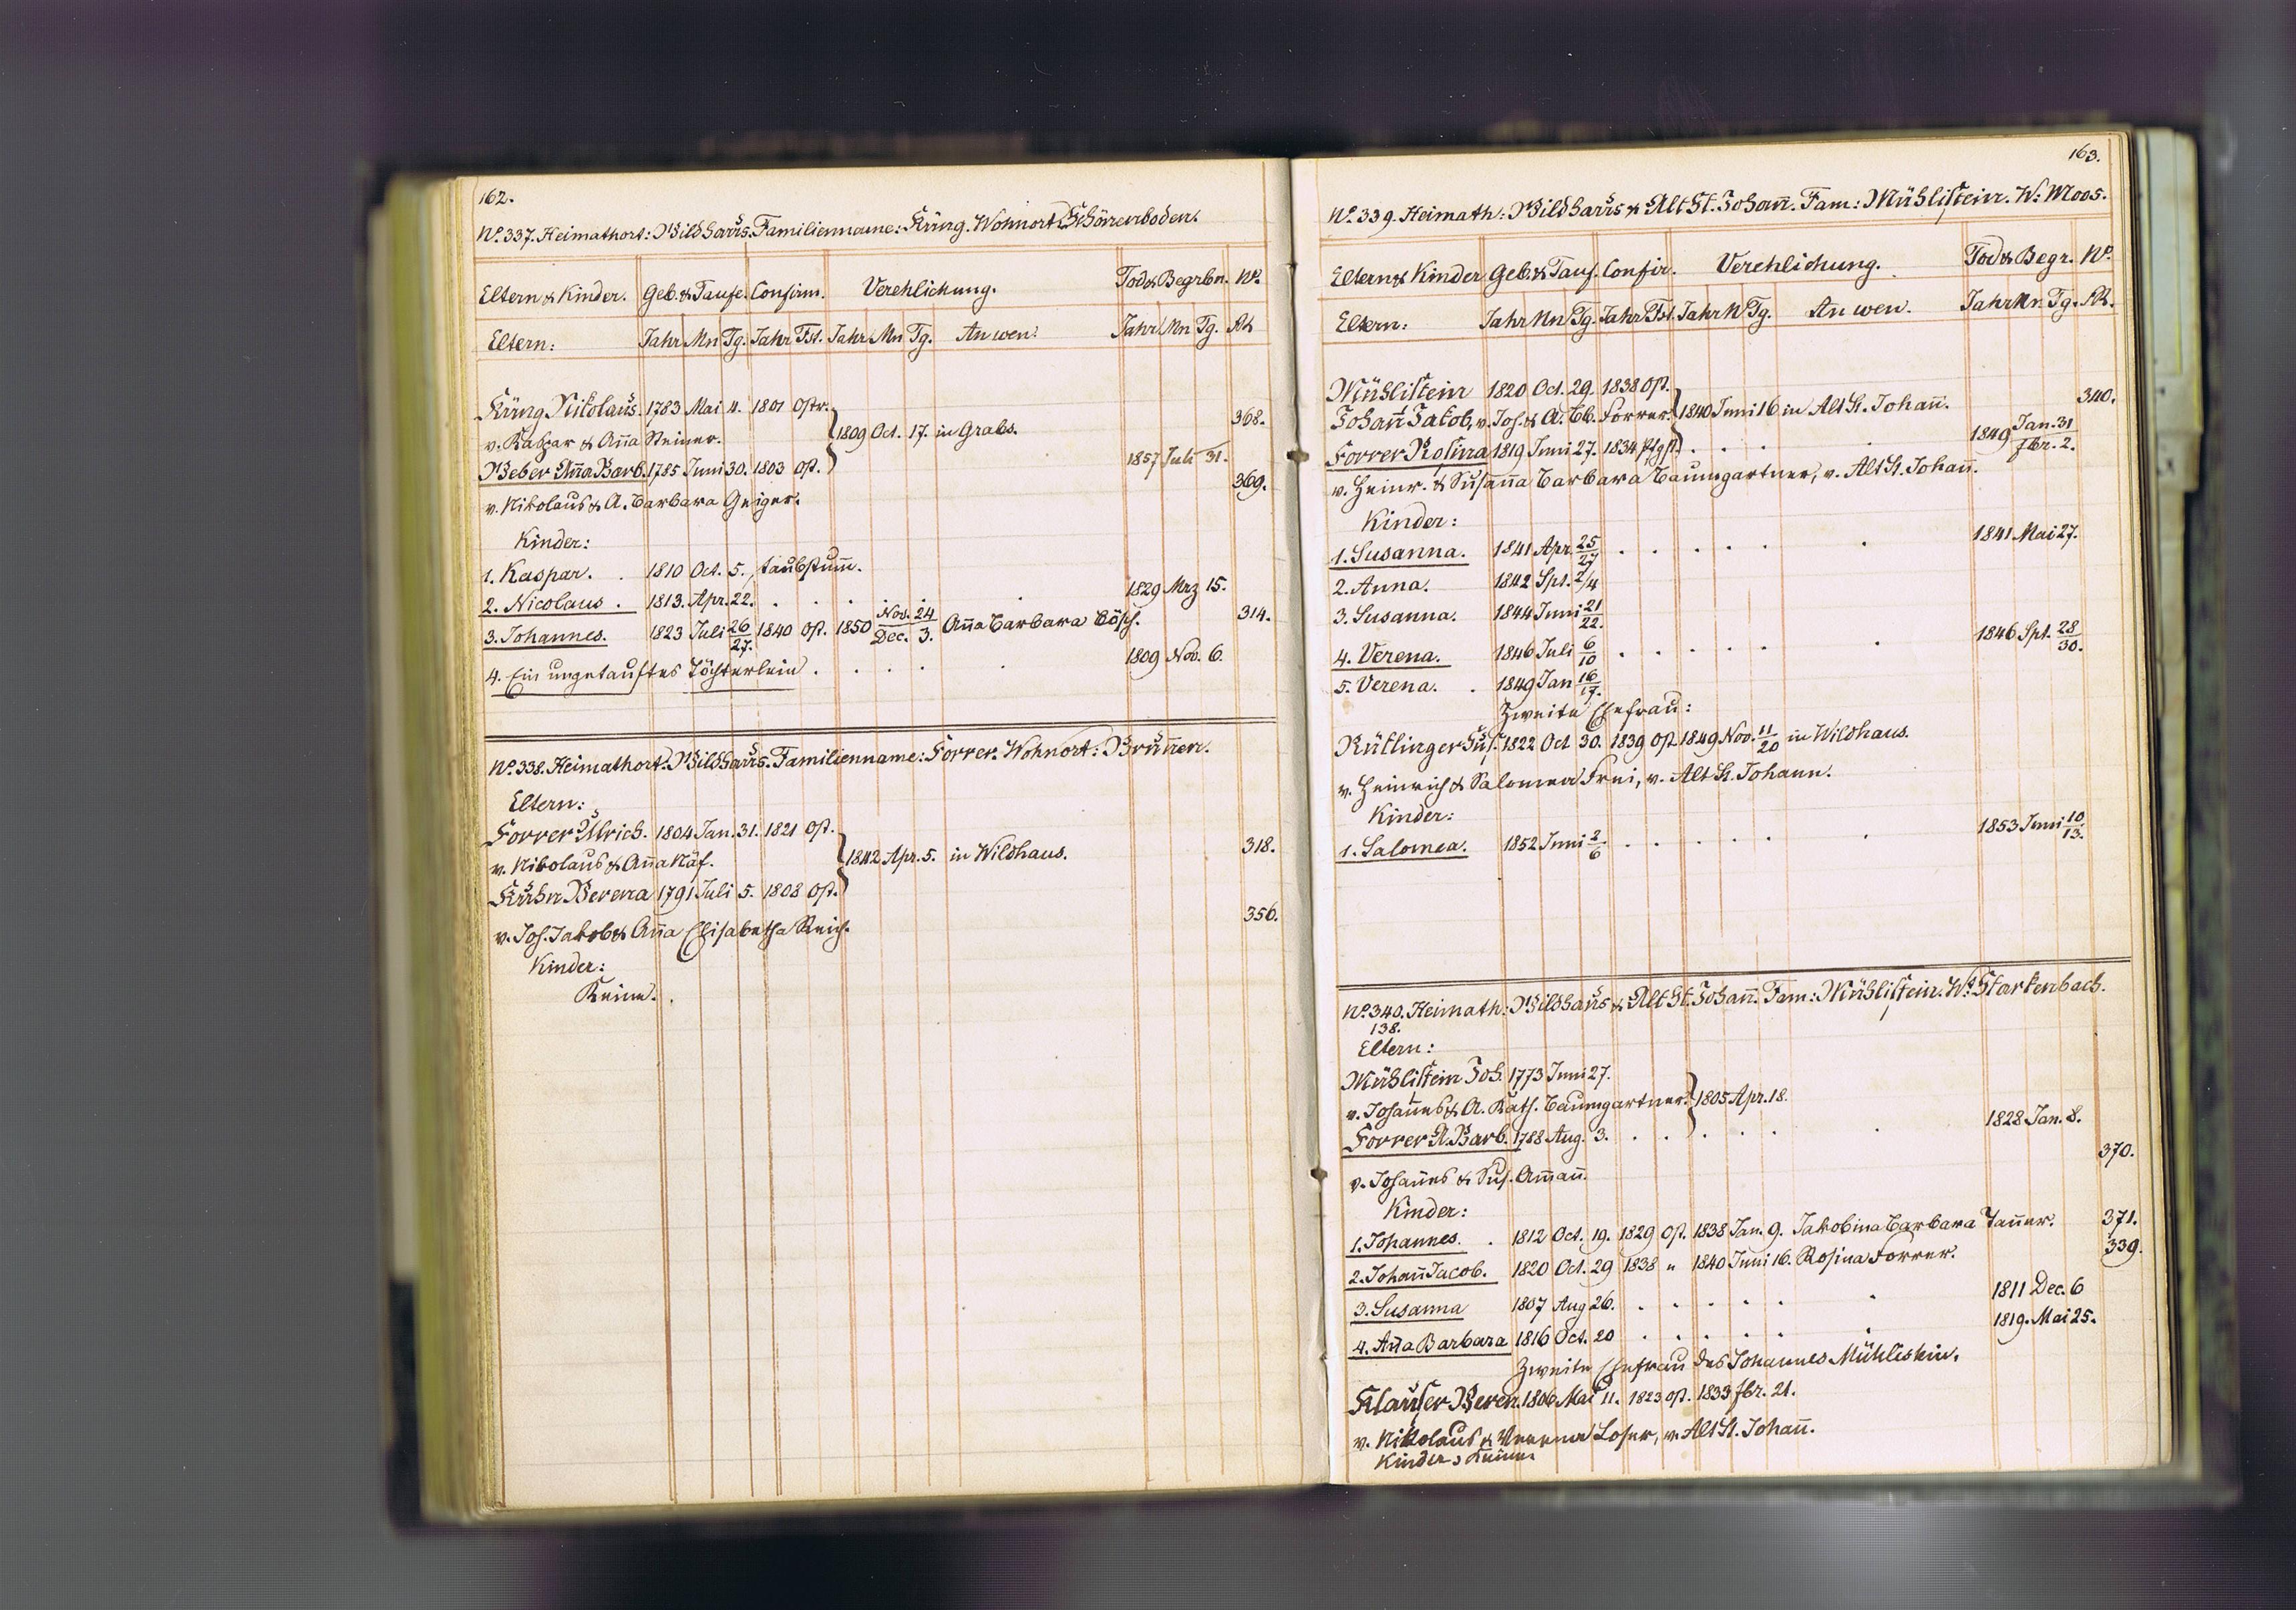 162.
No. 337. Heimathort: Wildhaus. Familienname: Küng. Wohnort: Schönenboden.
Eltern & Kinder. Geb. & Taufe. Confirm. Verehlichung. Tod & Begrbn. No.
Eltern: Jahr Mn Tg. Jahr Fst. Jahr Mn Tg. An wen: Jahr Mn Tg.
Küng Nikolaus. 1783 Mai 4. 1801 Ostr.
368.
v. Kaspar & Aña Steiner. 1809 Oct. 17. in Grabs.
Weber Aña Barb. 1785 Juni 30. 1803 Ost. 1857 Juli 31.
369.
v. Nikolaus & A. Barbara Geiger.
Kinder:
1. Kaspar. . 1810 Oct. 5. taubstum̄.
2. Nicolaus . 1813. Apr. 22. . . . . . . 1829 Mrz 15.
3. Johannes. 1823 Juli 26/27. 1840 Ost. 1850 Nov. 24/Dec. 3. Aña Barbara Bösch. 314.
4. Ein ungetauftes Töchterlein . . . . . 1809 Nov. 6.
No. 338. Heimathort: Wildhaus. Familienname: Forrer. Wohnort: Bruñen.
Eltern:
Forrer Ulrich. 1804 Jan. 31. 1821 Ost.
318.
v. Nikolaus & Aña Näf. 1842 Apr. 5. in Wildhaus.
Kuhn Verena 1791 Juli 5. 1808 Ost.
356.
v. Joh. Jakob & Aña Elisabetha Reich.
Kinder:
Keine.
163.
No. 339. Heimath: Wildhaus & Alt St. Johañ. Fam: Mühlistein. W: Moos.
Eltern & Kinder Geb. & Tauf. Confir. Verehlichung. Tod & Begr. No.
Eltern: Jahr Mn Tg. Jahr Fst. Jahr M Tg. An wen. Jahr Mn Tg.
Mühlistein 1820 Oct. 29. 1838 Ost.
340.
Johañ Jakob, v. Joh. & A. Bb. Forrer. 1840 Juni 16 in Alt St. Johañ.
Forrer Rosina 1819 Juni 27. 1834 Pfgst. . . . . 1849 Jan. 31/Fbr. 2.
v. Heinr. & Susaña Barbara Baumgartner, v. Alt St. Johañ.
Kinder:
1. Susanna. 1841 Apr. 25/27 . . . . . . 1841 Mai 27.
2. Anna. 1842 Spt. 2/4
3. Susanna. 1844 Juni 21/22.
4. Verena. 1846 Juli 6/10 . . . . . . 1846 Spt. 28/30.
5. Verena. . 1849 Jan 16/17.
Zweite Ehefrau:
Rütlinger Sus. 1822 Oct 30. 1839 Ost. 1849 Nov. 11/20 in Wildhaus.
v. Heinrich & Salomea Frei, v. Alt St. Johann.
Kinder:
1. Salomea. 1852 Juni 2/6 . . . . . . 1853 Juni 10/13.
No. 340. Heimath: Wildhaus & Alt St. Johañ. Fam: Mühlistein. W: Starkenbach.
138.
Eltern:
Mühlistein Joh. 1773 Juni 27.
v. Johañes & A. Kath. Baumgartner. 1805 Apr. 18.
Forrer A. Barb. 1788 Aug. 3. . . . . . . 1828 Jan. 8.
370.
v. Johañes & Sus. Am̄añ.
Kinder:
1. Johannes. . 1812 Oct. 19. 1829 Ost. 1838 Jan. 9. Jakobina Barbara Tañer. 371.
2. Johañ Jacob. 1820 Oct. 29 1838 " 1840 Juni 16. Rosina Forrer. 339.
3. Susanna 1807 Aug 26. . . . . . . 1811 Dec. 6
4. Aña Barbara 1816 Oct. 20 . . . . . . 1819. Mai 25.
Zweite Ehefrau des Johannes Mühlistein.
Klauser Veren. 1806 Mai 11. 1823 Ost. 1833 Fbr. 21.
v. Nikolaus & Verena Loser, v. Alt St. Johañ.
Kinder: Keine.